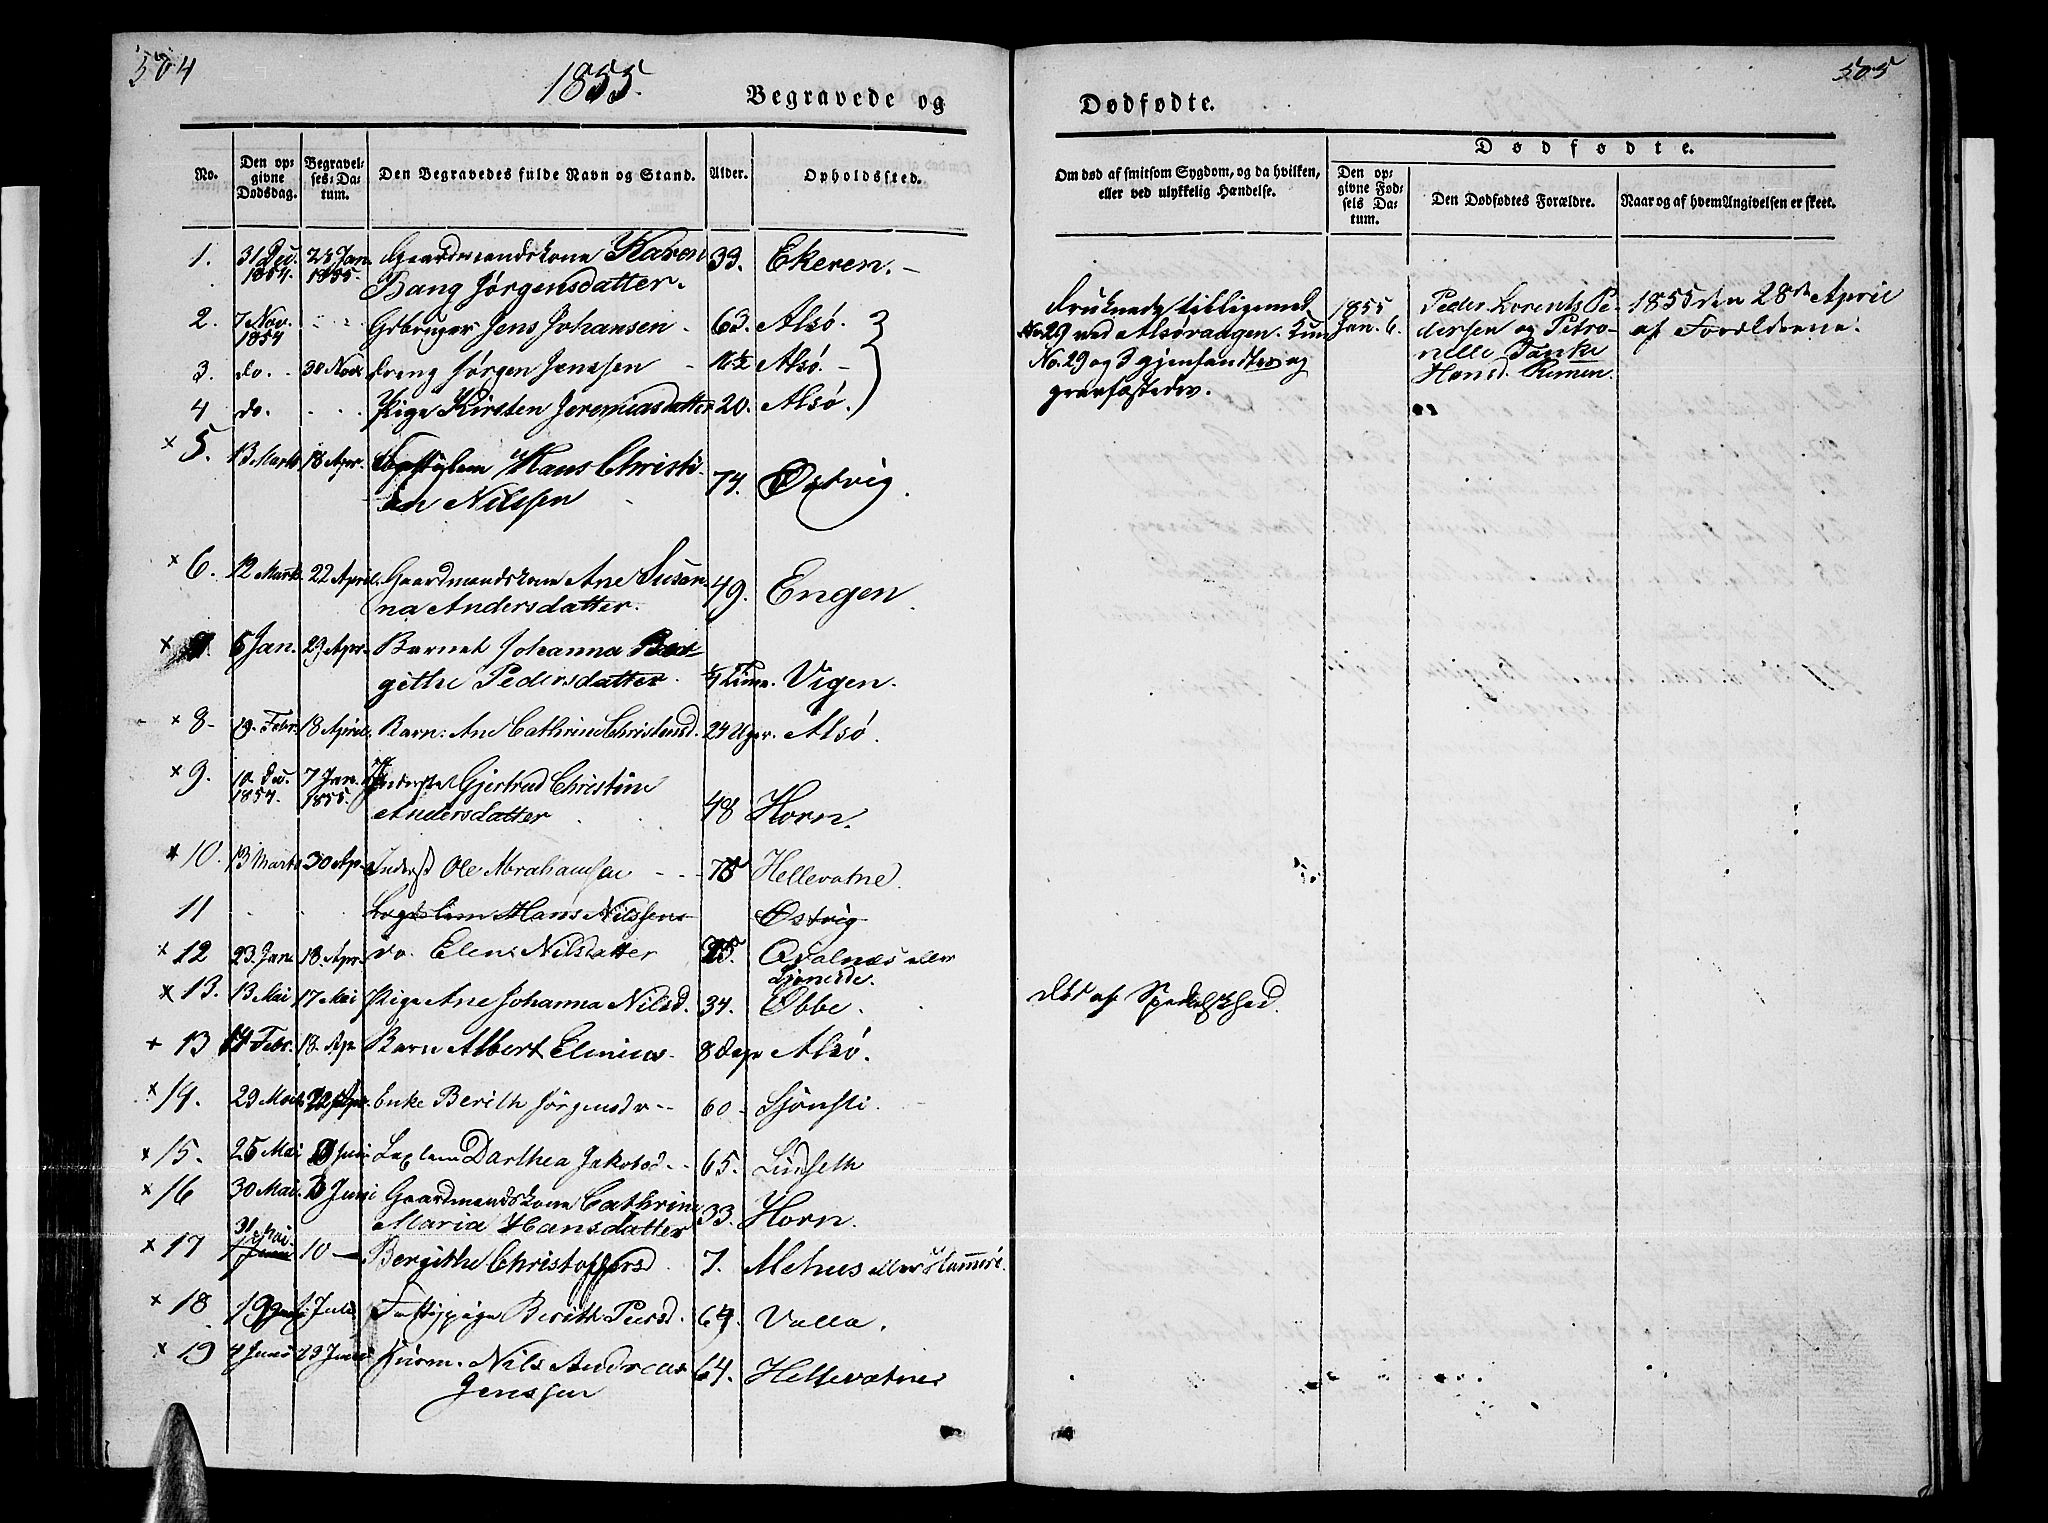 504
1855.
Begravede og
No.
Den op-
givne
Dødsdag.
Begravel-
ses-Da-
tum.
Den Begravedes fulde Navn og Stand.
Alder.
Opholdssted.
1. 31 Dec. 1854. Jan. 1855. Gaardmandskone Karen 33. Ekeren.
Bang Jørgensdatter.
2. 7 Nov. 1854 Gbruger Jens Johansen 63. Alsø.
3. do. 30 Nov. Dreng Jørgen Jenssen 16½ Alsø.
4 do. Pige Kirsten Jeremiasdatter 20. Alsø.
× 5. 13 Marts 18 Apr. Hans Christi-
an Nilssen 74. Østvig.
× 6. 12 Marts 22 April. Gaardmandskone Ane Susan-
na Andersdatter. 49. Engen.
× 6 Jan. 29 Apr. Barnet Johanna Ber-
gethe Pedersdatter. Vigen.
× 8 19. Febr. 18 April. Barn: Ane Cathrine Christensd. 24 Uger. Alsø.
× 9. 10. Dec. 1854. 7 Jan. 1855. Inderst Gjertrud Christine
Andersdatter 48 Horn.
× 10. 13 Marts 30 Ap. Inderst Ole Abrahamsen 75 Hellevatne.
11 Lægdslem Hans Nilssen Østvig
× 12 23. Jan 18. Apr. do. Elen Nilsdatter Qvalnæs eller
× 13. 13 Mai 17 Mai Pige Ane Johanna Nilsd. 34. Øbbe.
+ 13 14 Febr. 18. Apr Barn Albert Elinius 8 Dage Alsø.
× 14. 29 Marts 22 Apr. Enke Berith Jørgensd 60 Sjonsti.
× 15. 25 Mai Juni Lægslem Darthea Jakobsd 65. Lindseth
× 16 30 Mai. Juni Gaardmandskone Cathrine
Maria Hansdatter 33. Horn.
× 17 31 Mai. 10 — Bergithe Christoffersd 7. Mehus eller
× 18 19 Juli Fattigpige Berith Peersd. 64 Valla.
× 19 4 Juni 29 Juni Huusm. Nils Andreas
Jenssen 64. Hellevatne
505
Dødfødte.
Om død af smitsom Sygdom, og da hvilken,
eller ved ulykkelig Hændelse.
Dødfødte.
Den op-
givne Fød-
sels Da-
tum.
Den Dødfødtes Forældre.
Naar og af hvem Angivelsen er skeet.
Druknede tilligemed
No. 29 ved Alsøvaagen. Kun
No. 29 og 3 gjenfandtes og
gravfæstedes.
1855
Jan. 6.
Peder Lorents Pe-
dersen og Petro-
nelle Tanke
Hansd. Remen.
1855 den 28de April
af Forældrene.
Død af Spedalskhed.